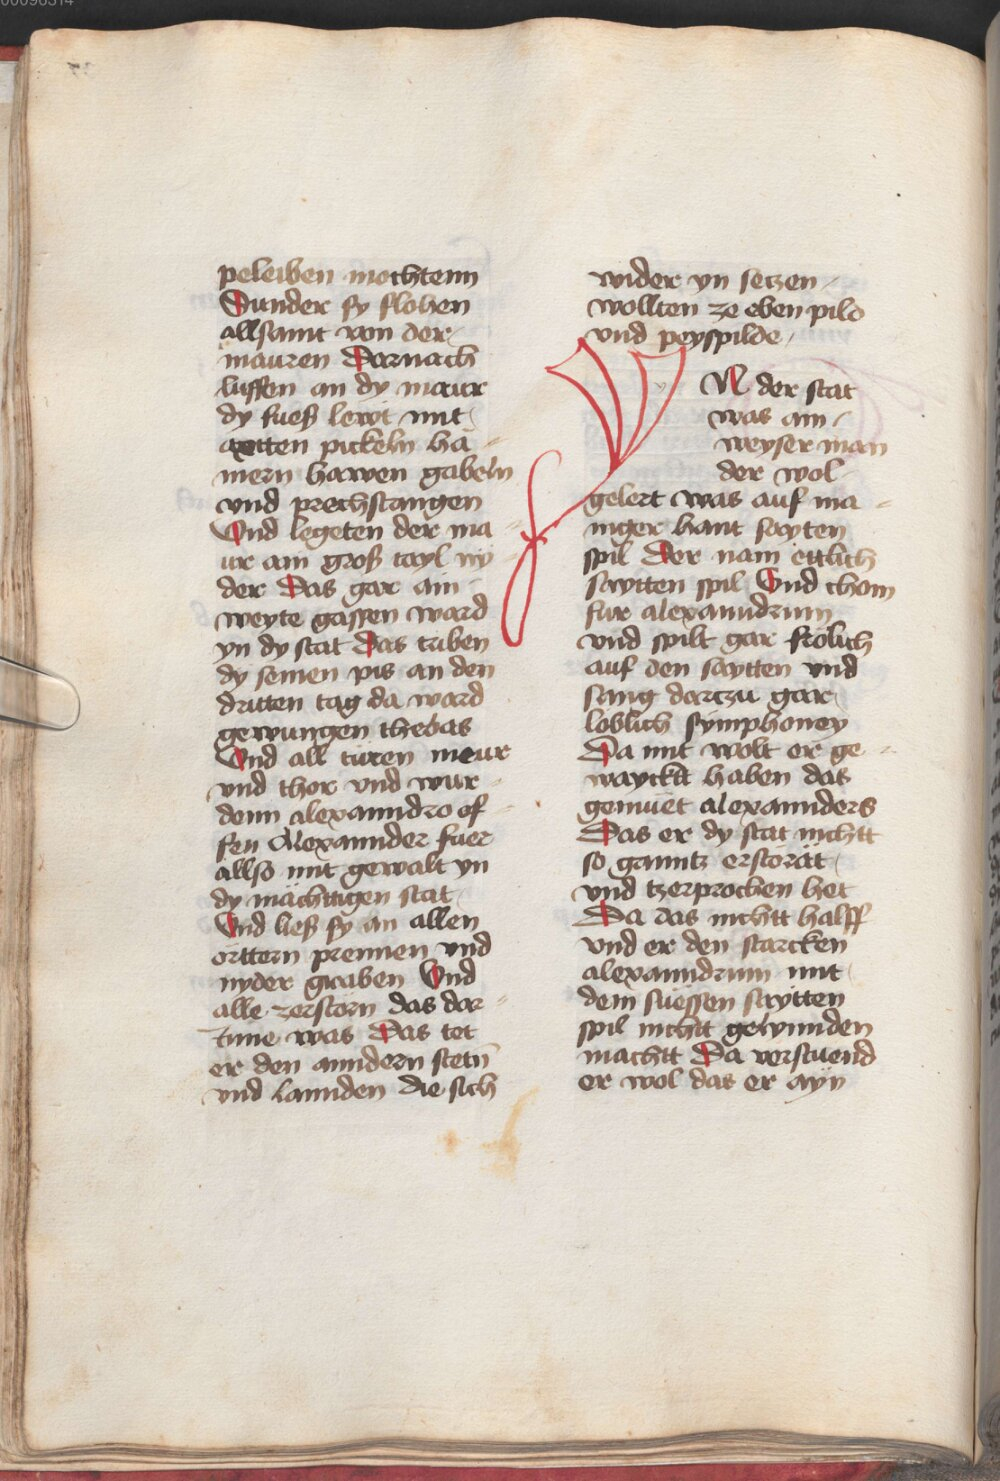 peleiben mochtenn
Sunder sy flohen
allsamt von der
mauren Darnach
luffen an dy maur
dy fuesz lewt mit
axtten pickeln ha=
mern hawen gabeln
vnd prechstangen
Vnd legeten der ma
ur ain grosz tayl ny
der Das gar ain
weyte gassen ward
yn dy stat Das triben
dy seinen pis an den
dritten tag da ward
gewungen thebas
Vnd all türen maur
vnd thor vnd wur=
denn alexanndro of=
fen Alexannder fuer
allso mit gewalt yn
dy mächttigen stat
Vnd liesz sy an allen
örttern prennen vnd
nyder graben Vnd
alle zerstörn das dar=
Inne was Das tet
er den anndern stetn
vnd lannden die sich
wider yn seczen
wollten ze eben pild
vnd peyspilde
IN der stat
was ain
weyser man
der wol
gelert was auf ma=
niger hant sayten
spil Der nam ettlich
saytten spil Vnd chom
fur alexanndrum
vnd spilt gar frölich
auf den saytten vnd
sang darczu gar
loblich symphoney
Da mit wolt er ge=
wayckt haben das
gemuet alexannders
Das er dy stat nichtt
so ganntz erstörätt
vnd tzerprochen het
Da das nichtt halff
vnd er den starcken
alexanndrum mit
dem suessen saytten
spil nichtt gewinnden
machtt Da verstuend
er wol das er ayn